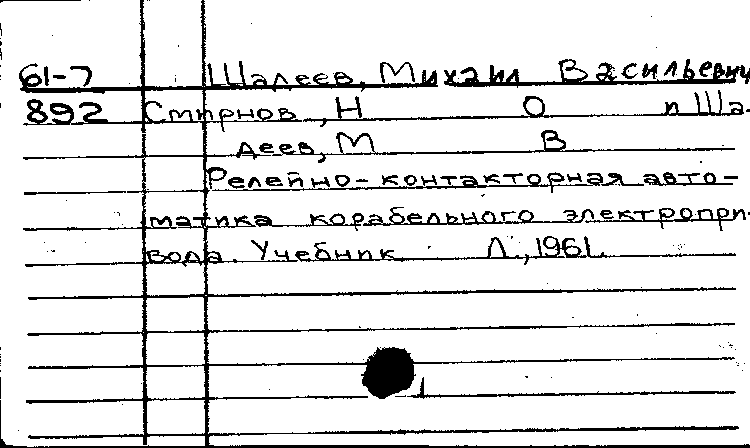 61-7 Шадеев, Михаил Васильевич
892 Смирнов, Н О и Ша-
деев, М В
Релейно-контакторная авто-
матика корабельного электропри-
вода. Учебник Л., 1961.
1